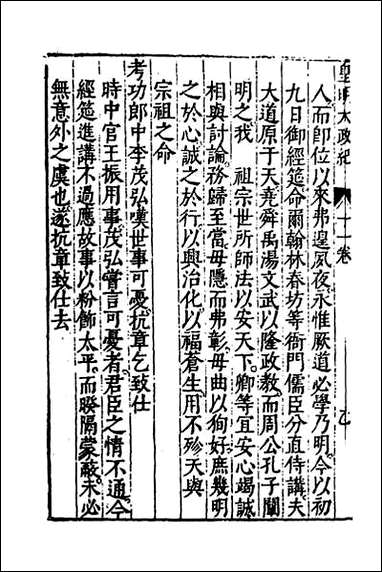 皇明大政紀 十一卷
人而卽位以來弗遑夙夜永惟厥道必學乃明今以初
九日御經筵命爾翰林春坊等衙門儒臣分直侍講夫
大道原于天堯舜禹湯文武以隆政敎而周公孔子闡
明之我 祖宗世所師法以安天下卿等宜安心竭誠
相與討論務歸至當毋隱而弗彰毋曲以狥好庶幾明
之於心誠之於行以興治化以福蒼生用不殄天與
宗祖之命
考功郎中李茂弘嘆世事可憂抗章乞致仕
時中官王振用事茂弘嘗言可憂者君臣之情不通今
經筵進講不過應故事以粉飾太平而暌隔蒙蔽未必
無意外之虞也遂抗章致仕去